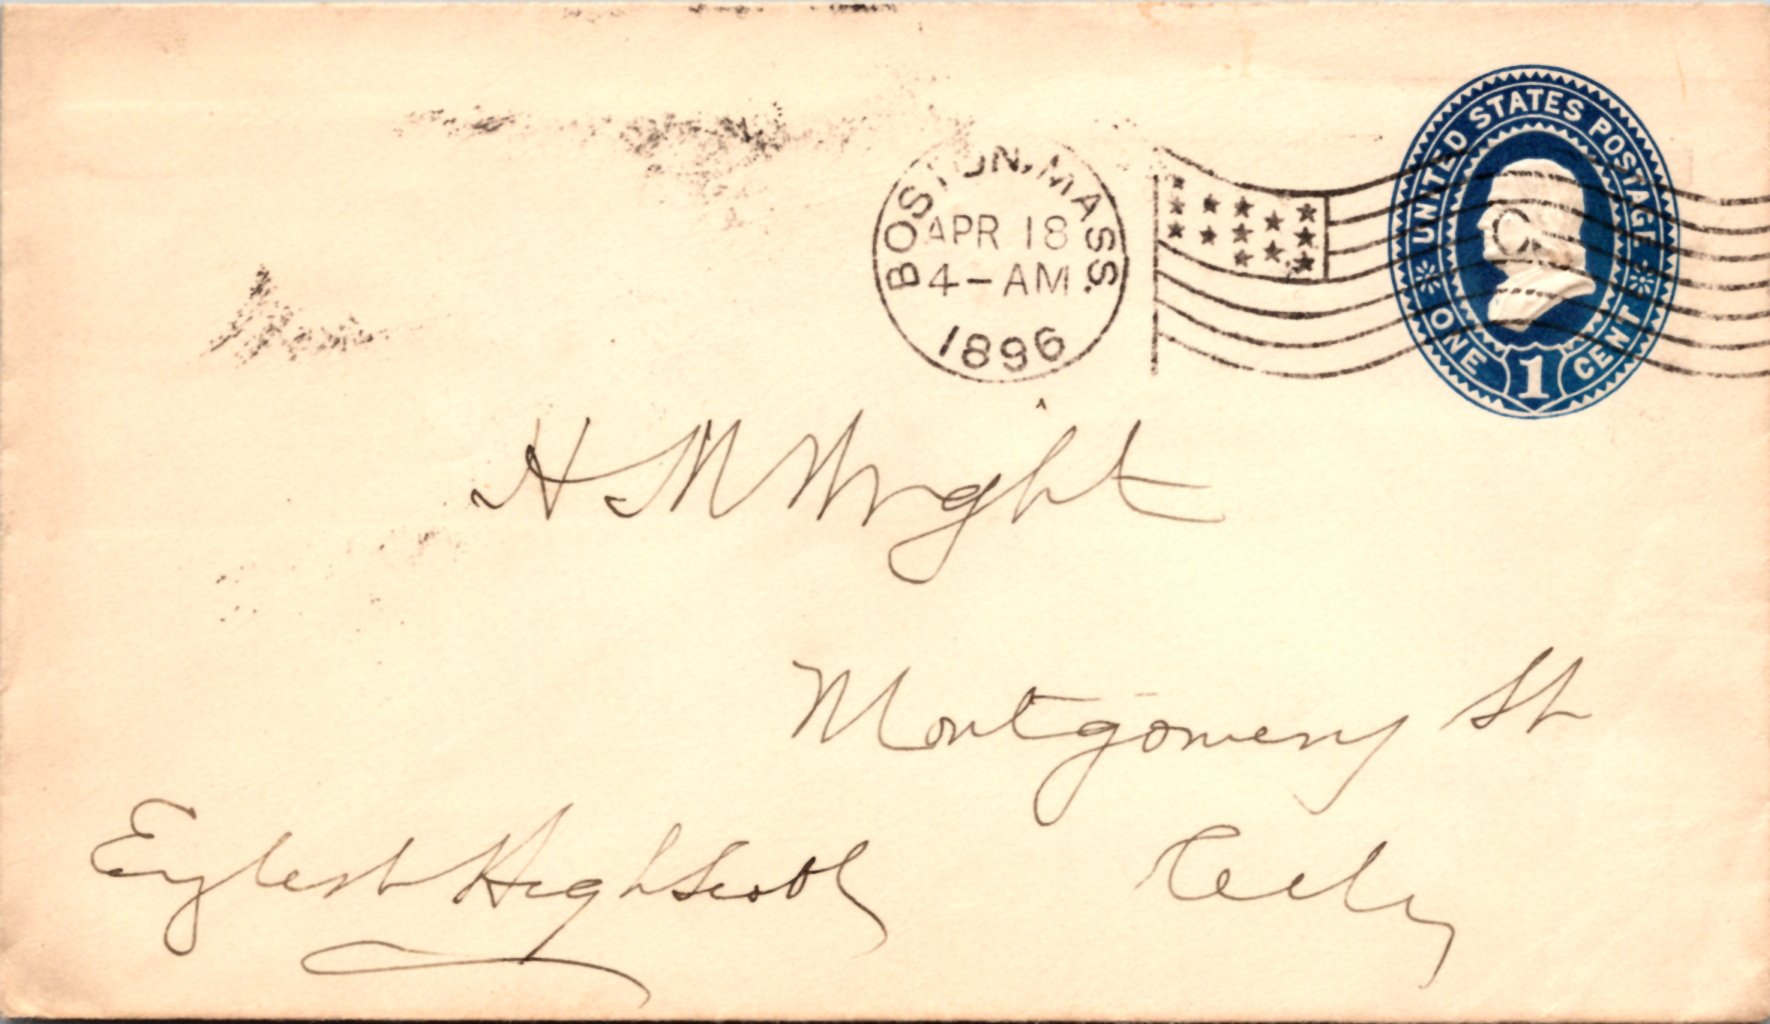 BOSTON, MASS.
APR 18
4-AM
1896
UNITED STATES POSTAGE
ONE 1 CENT
H M Wright
Montgomery St
City
English High School